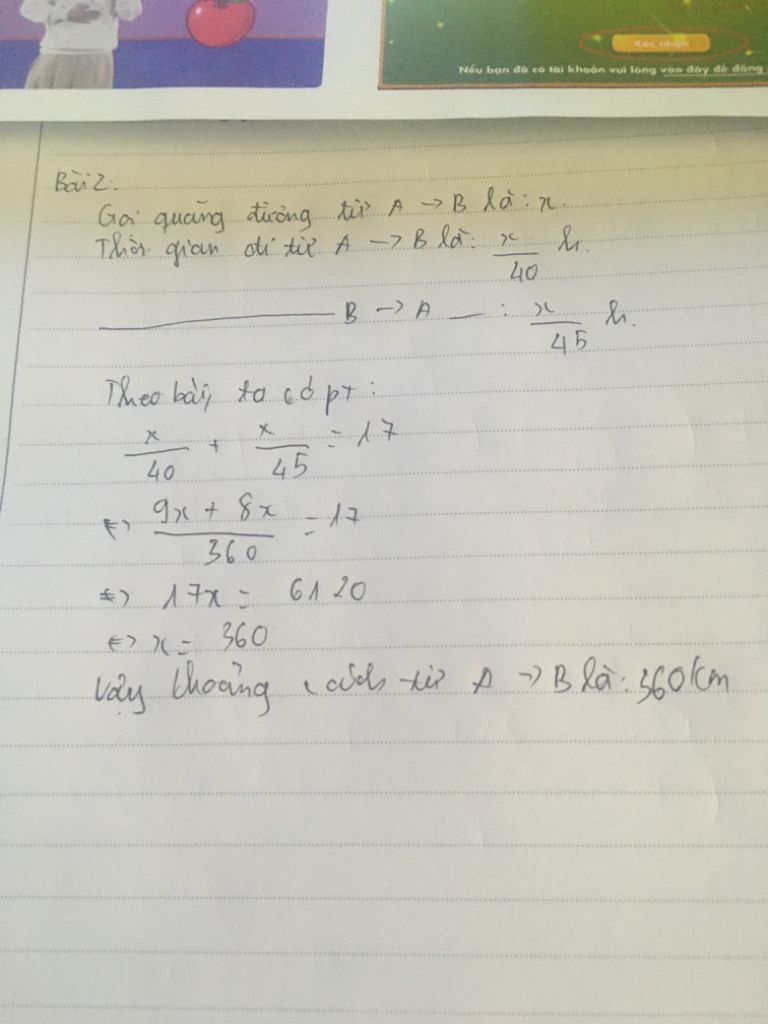 Xác nhận
Nếu bạn đã có tài khoản vui lòng vào đây để đăng
Bài 2:
Gọi quãng đường từ A → B là: x.
Thời gian đi từ A → B là: x/40 h.
——— B → A — : x/45 h.
Theo bài, ta có pt:
x/40 + x/45 = 17
<=> (9x + 8x)/360 = 17
<=> 17x = 6120
<=> x = 360
Vậy khoảng cách từ A → B là: 360km